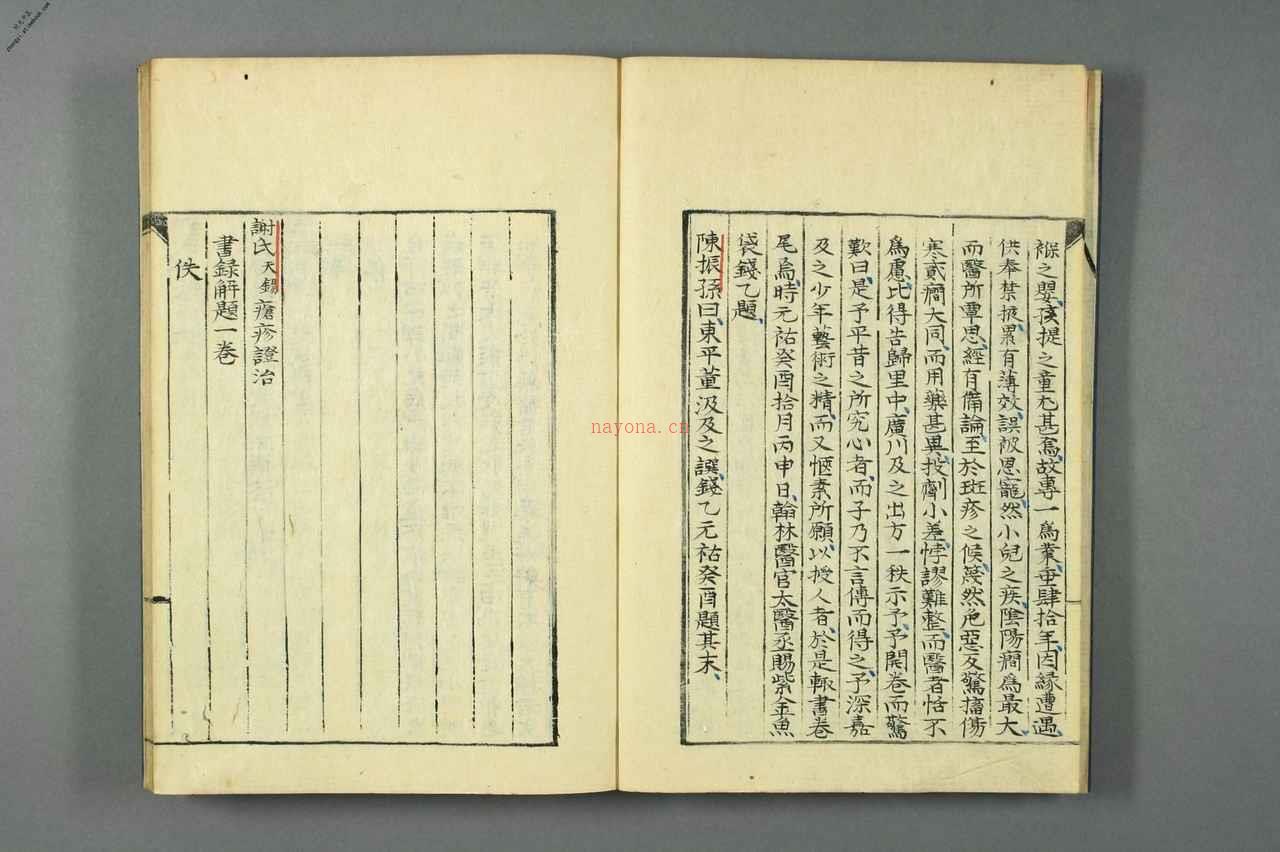 褓之嬰、孩提之童、尤甚焉、故專一爲業、垂肆拾年、因緣遭遇、
供奉禁掖、累有薄效、誤被恩寵、然小兒之疾、陰陽癇爲最大、
而醫所覃思、經有備論、至於斑疹之候、蔑然危惡、反驚搐傷
寒貳癇大同、而用藥甚異、投劑小差、悖謬難整、而醫者恬不
爲慮、比得告歸里中、廣川及之出方一秩示予、予開卷而驚
歎曰、是予平昔之所究心者、而子乃不言傳而得之、予深嘉
及之少年藝術之精、而又愜素所願、以授人者、於是輙書卷
尾焉、時元祐癸酉拾月丙申日、翰林醫官太醫丞賜紫金魚
袋錢乙題、
陳振孫曰、東平董汲及之譔、錢乙元祐癸酉題其末、
謝氏天錫瘡疹證治
書録解題一卷
佚
nayona.cn